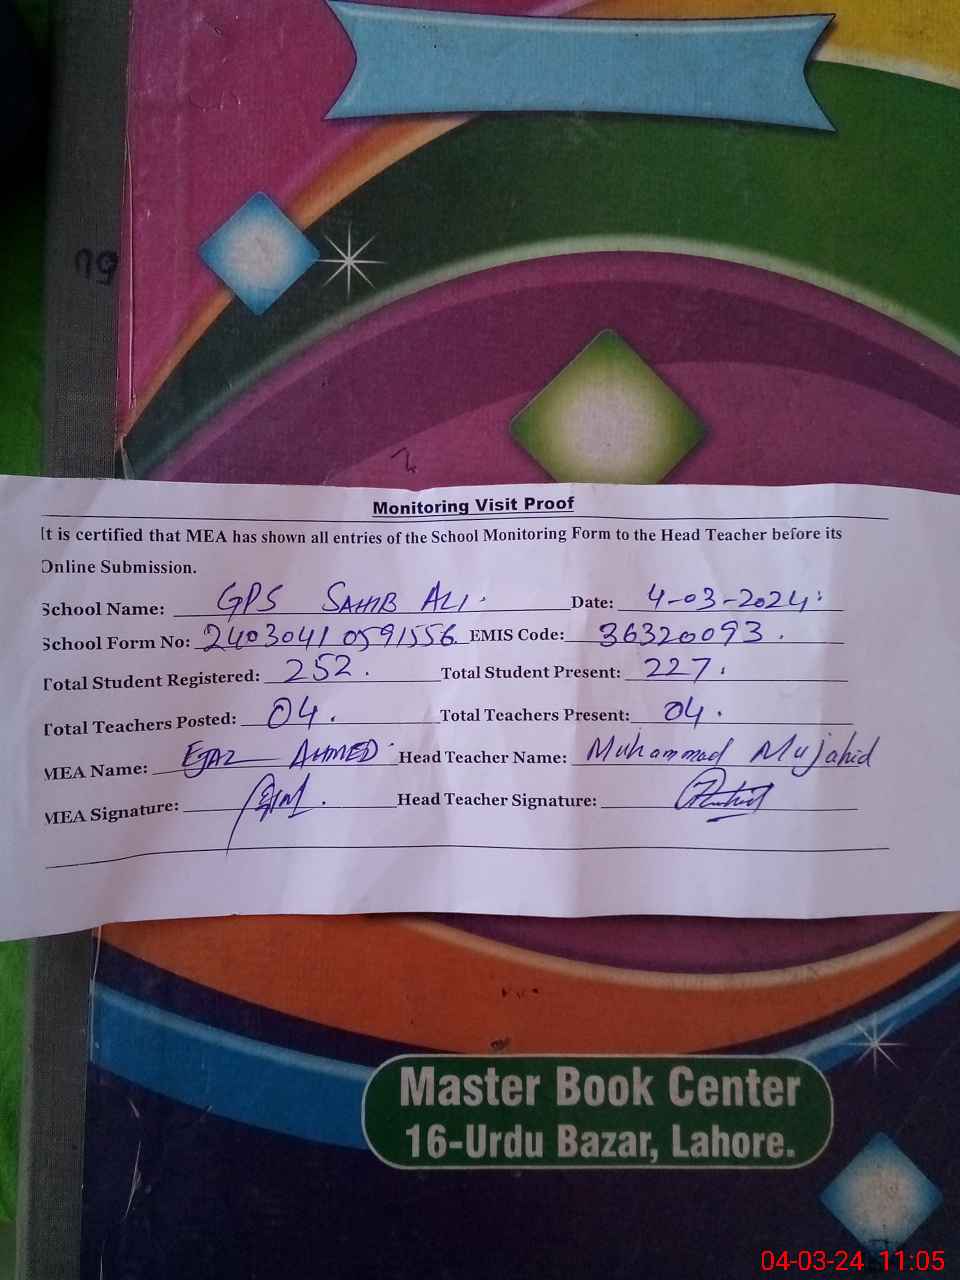 Monitoring Visit Proof
It is certified that MEA has shown all entries of the School Monitoring Form to the Head Teacher before its
Online Submission.
School Name: GPS SAHIB ALI. Date: 4-03-2024.
School Form No: 24030410591556 EMIS Code: 36320093.
Total Student Registered: 252. Total Student Present: 227.
Total Teachers Posted: 04. Total Teachers Present: 04.
MEA Name: EJAZ AHMED Head Teacher Name: Muhammad Mujahid
MEA Signature: Head Teacher Signature:
Master Book Center
16-Urdu Bazar, Lahore.
04-03-24 11:05